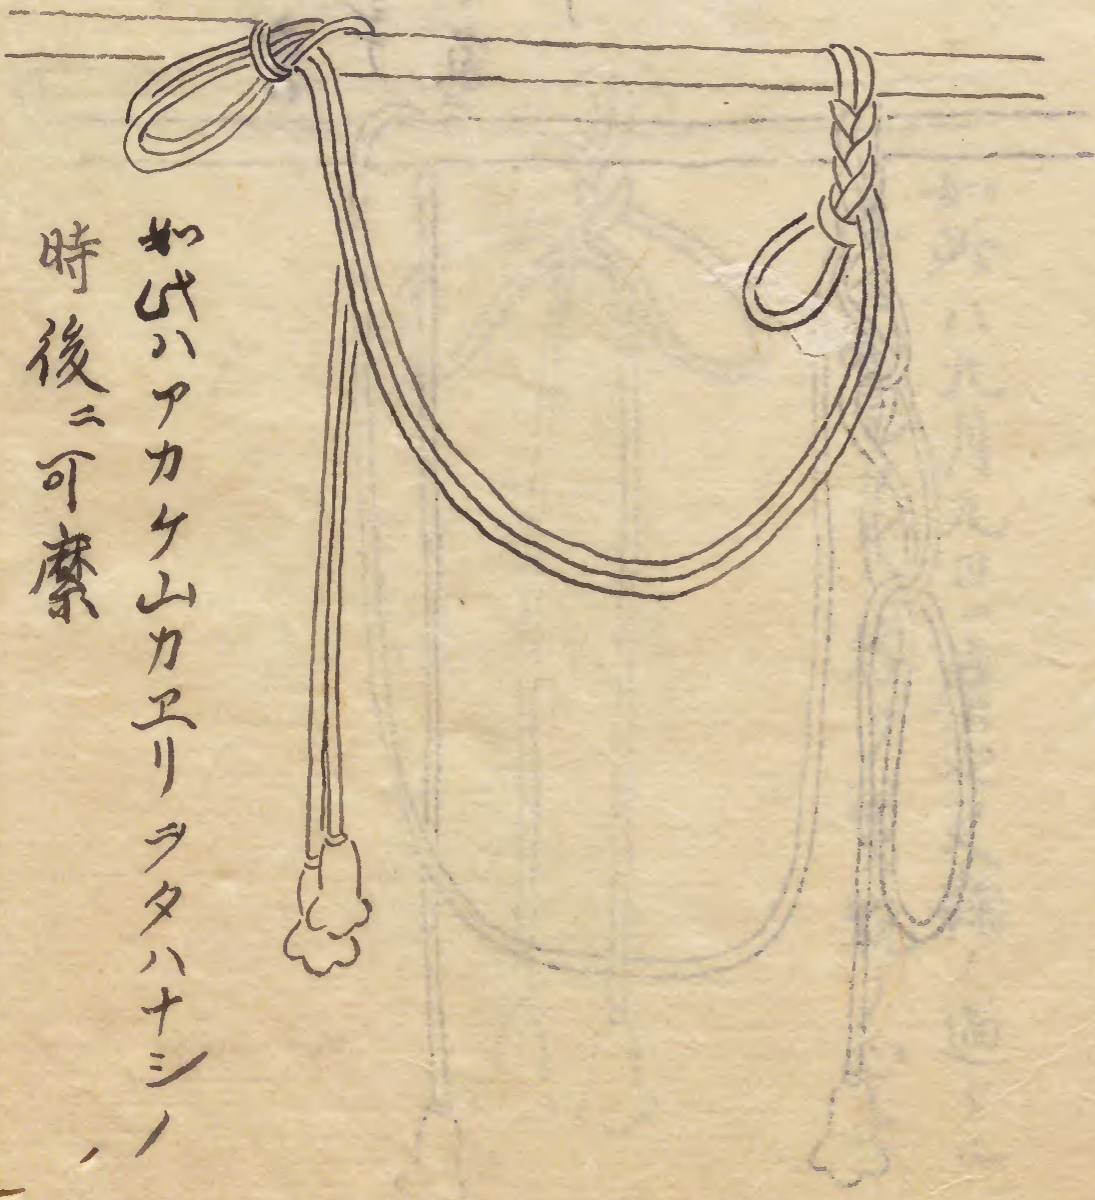 如此ハアカケ山カヱリヲタハナシノ
時後ニ可縻